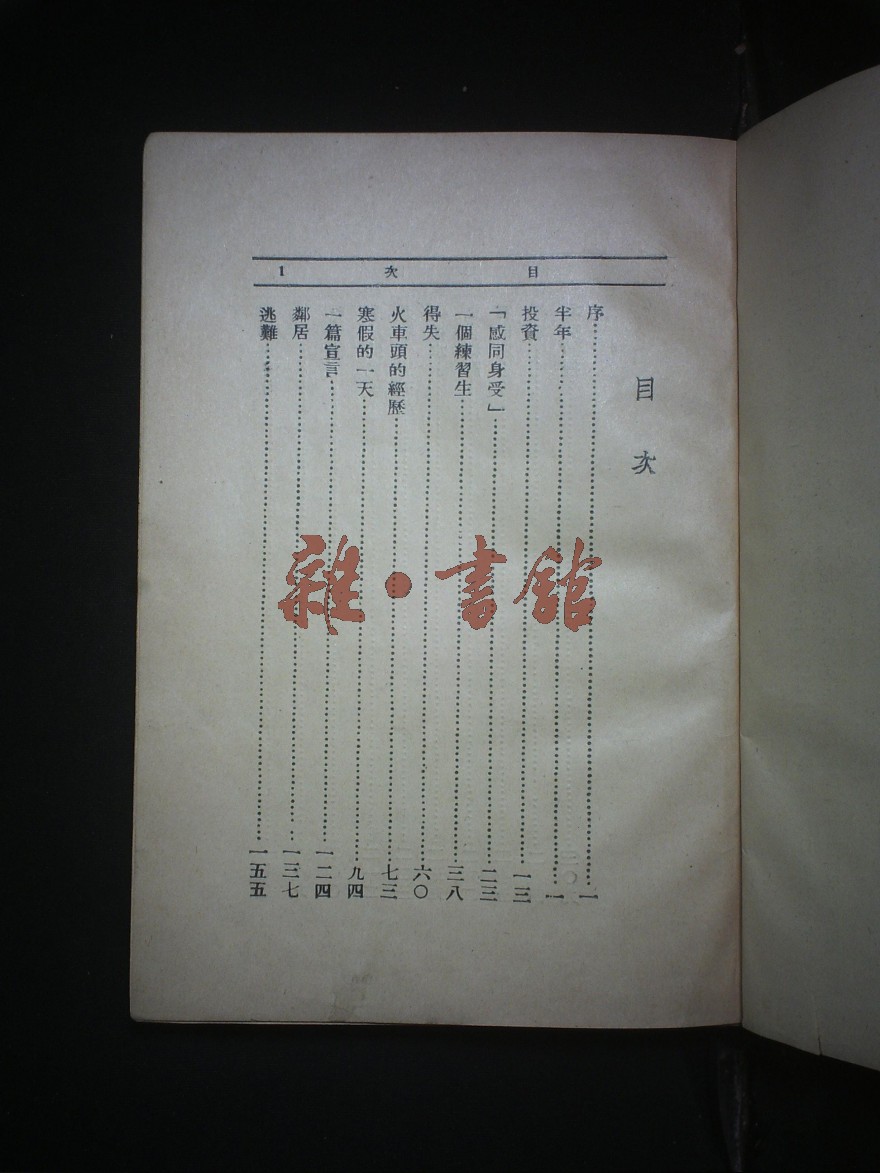 目次 1
目次
序……一
半年……一
投資……一三
「感同身受」……二三
一個練習生……三八
得失……六〇
火車頭的經歷……七三
寒假的一天……九四
一篇宣言……一二四
鄰居……一三七
逃難……一五五
雜·書館